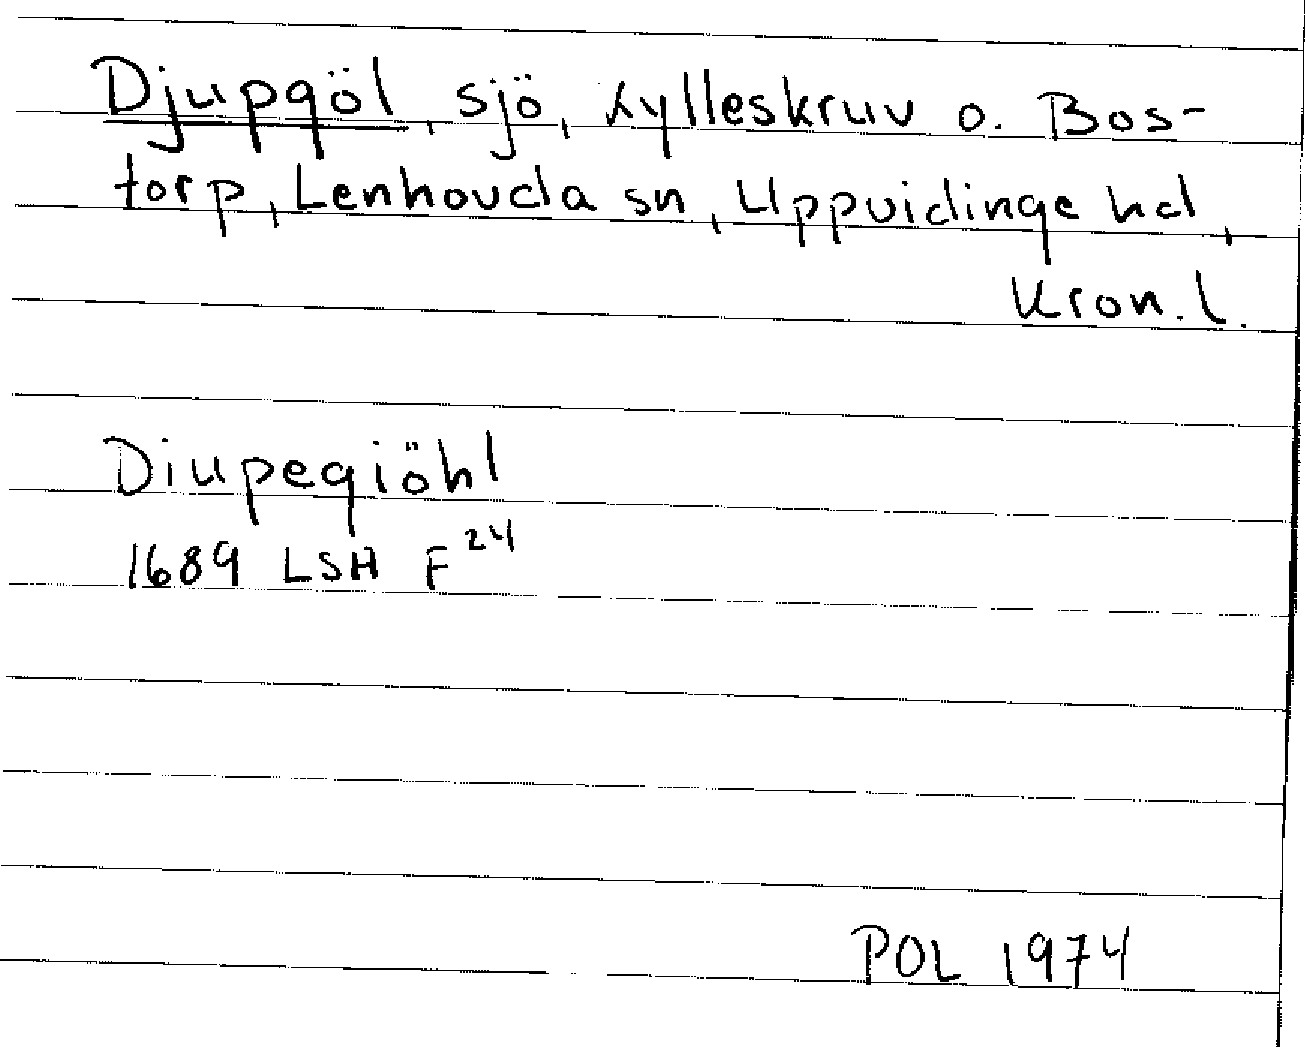 Djupgöl, sjö, Kylleskruv o. Bos-
torp, Lenhovda sn, Uppvidinge hd,
Kron. l.
Diupegiöhl
1689 LSH F 24
POL 1974